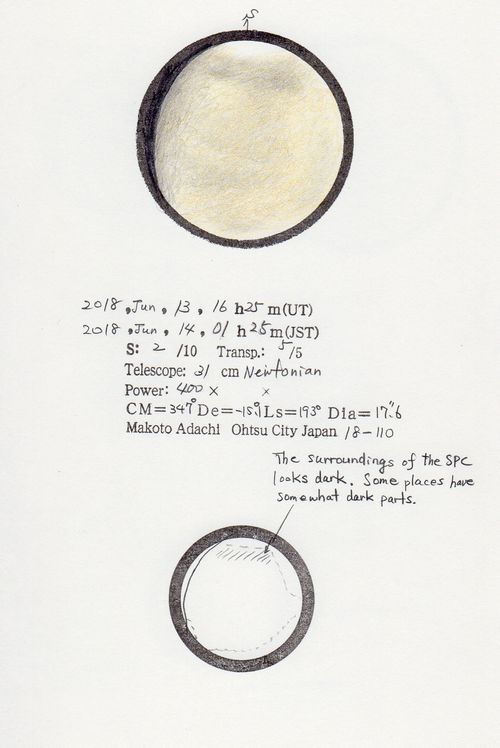 S
2018, Jun, 13, 16 h25 m(UT)
2018, Jun, 14, 01 h25m(JST)
S: 2 /10 Transp.: 5/5
Telescope: 31 cm Newtonian
Power: 400 × ×
CM=347° De=-15.1° Ls=193° Dia=17".6
Makoto Adachi Ohtsu City Japan 18-110
The surroundings of the SPC
looks dark. Some places have
somewhat dark parts.